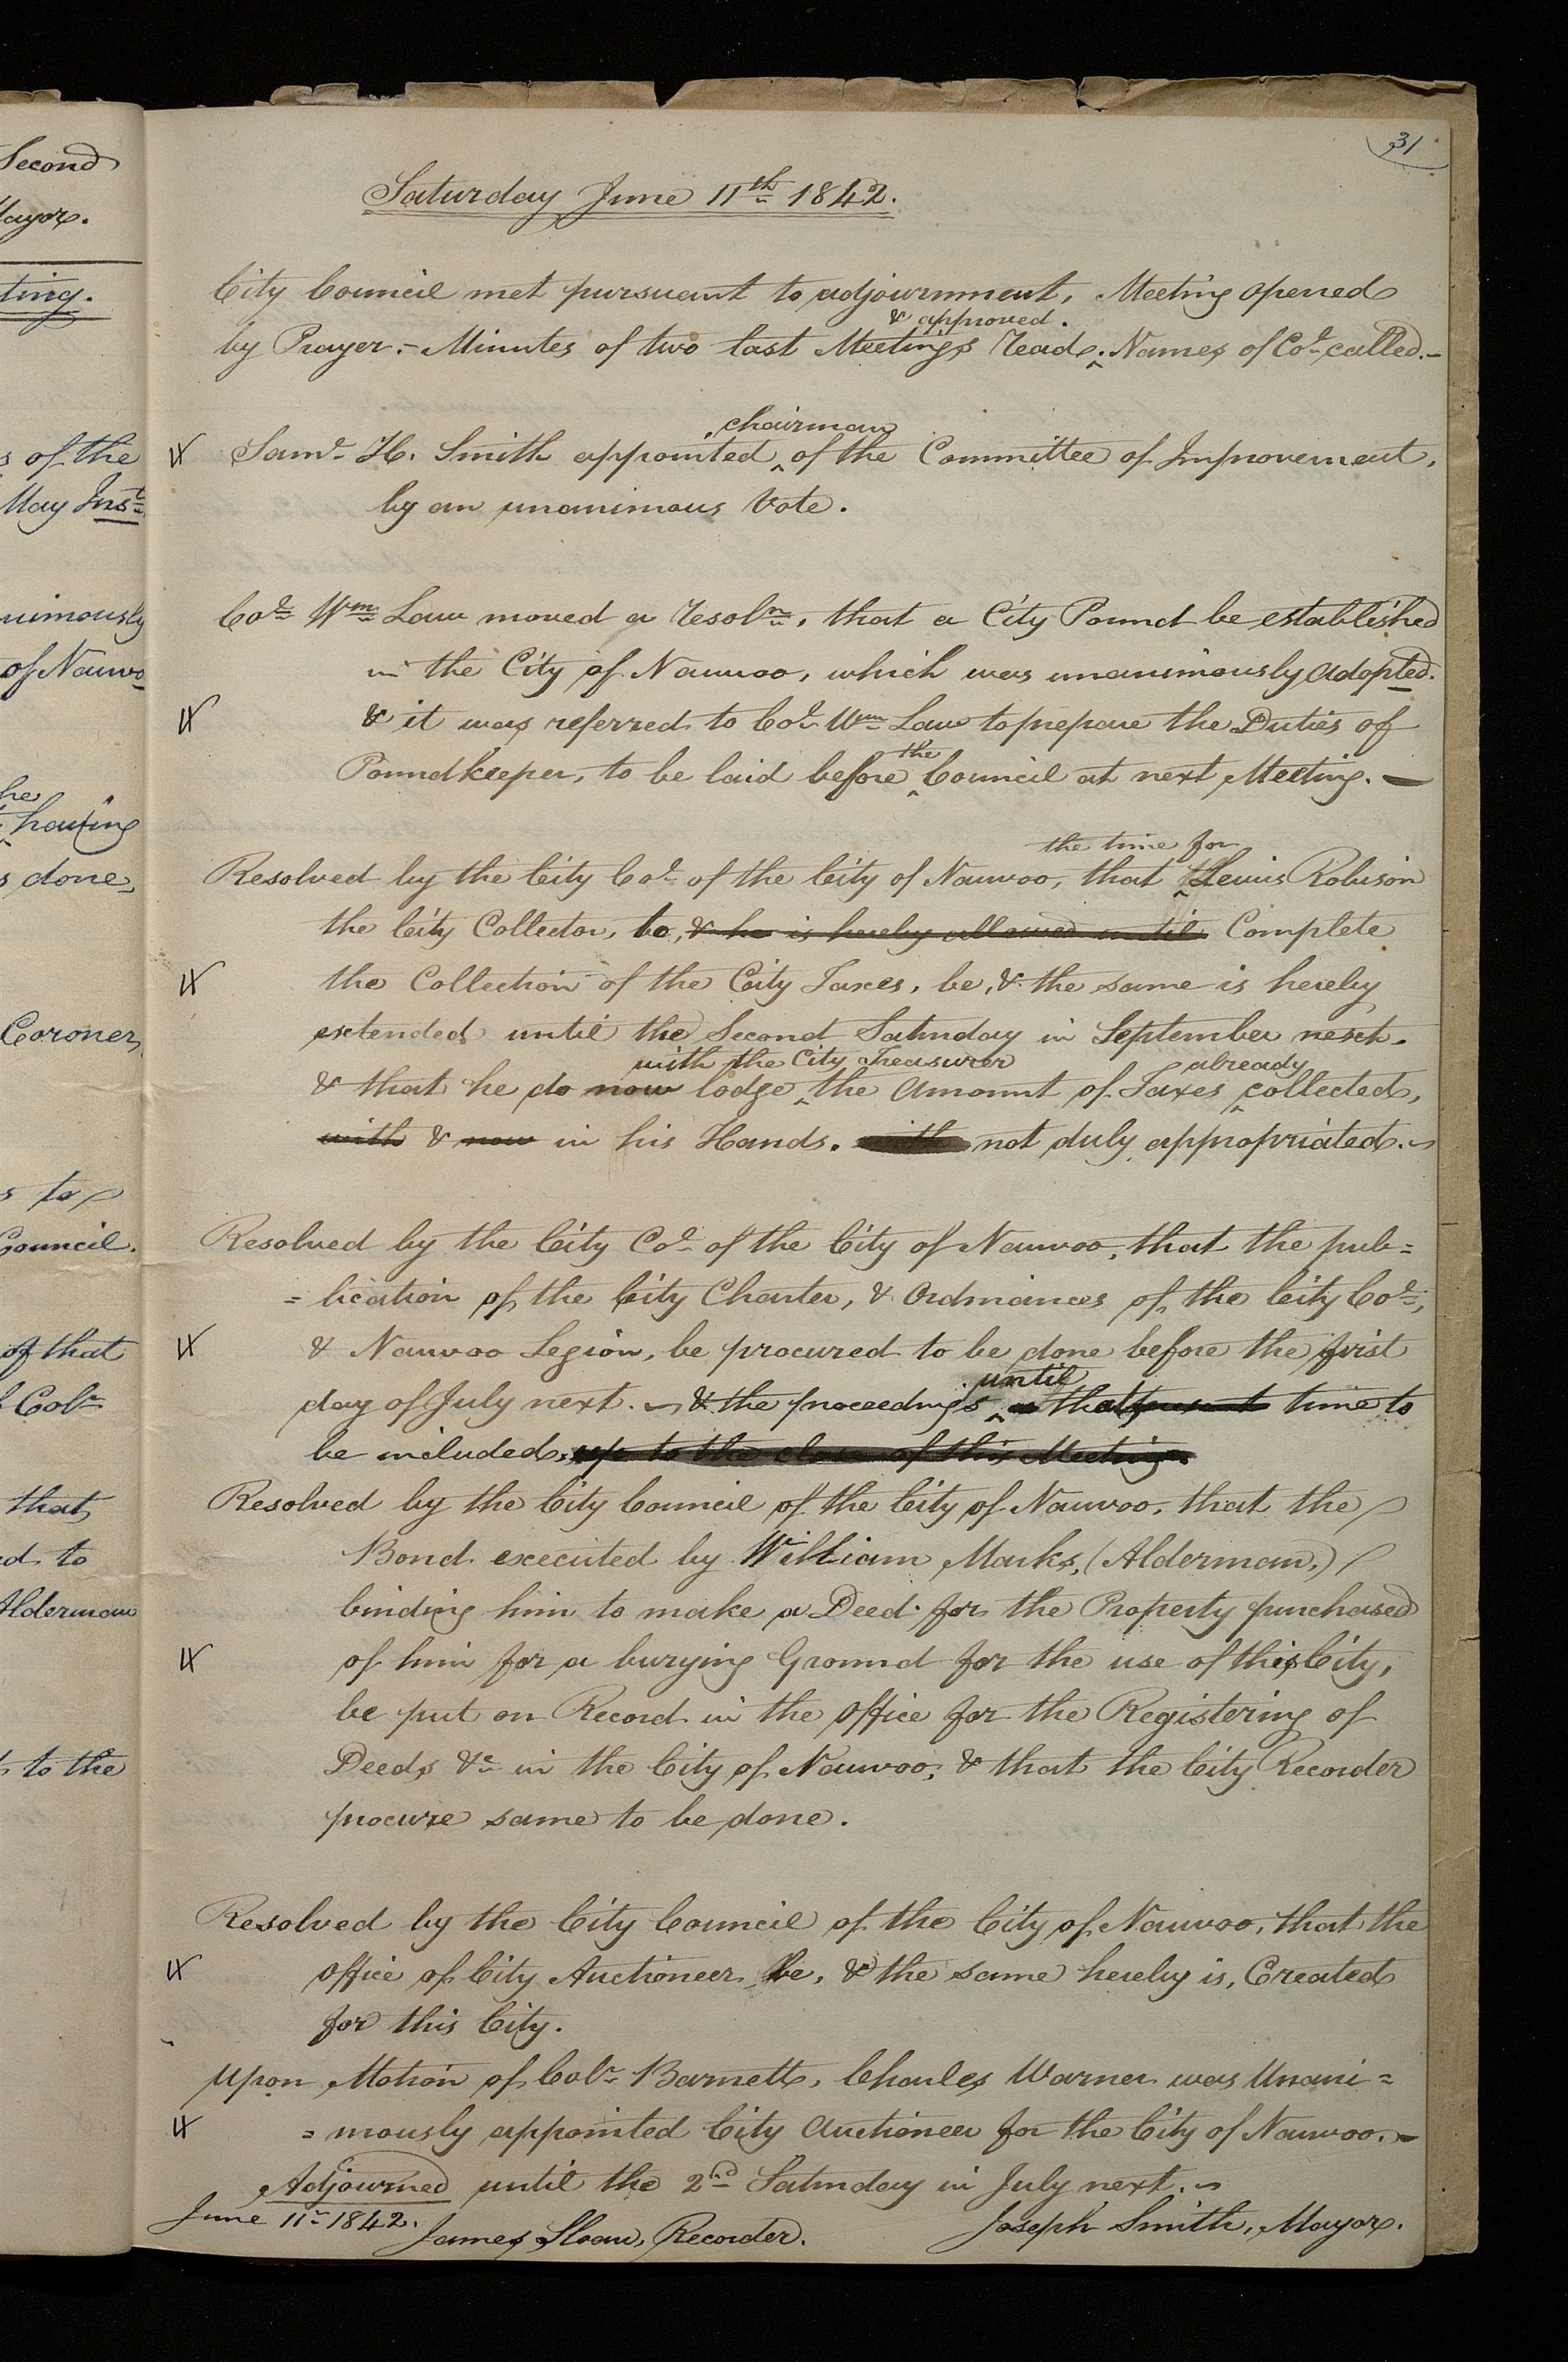 Second
Mayor.
ting.
s of the
May Inst.
nimously
of Nauvo
he
having
s done,
Coroner,
s to
Council.
of that
that
ed to
Alderman
to the
31
Saturday June 11th 1842.
City Council met pursuant to adjournment, Meeting opened
& approved.
by Prayer.- Minutes of two last Meetings Read. ‸ Names of Col. called.-
chairman
Saml. H. Smith appointed ‸ of the Committee of Improvement,
by an unanimous Vote.
Col. Wm. Law moved a resoln., that a City Pound be established
in the City of Nauvoo, which was unanimously adopted.
& it was referred to Col. Wm. Law to prepare the Duties of
the
Poundkeeper, to be laid before ‸ Council at next Meeting. —
the time for
Resolved by the City Col. of the City of Nauvoo, that ‸ Lewis Robison
the City Collector, to, & he is hereby allowed until Complete
the Collection of the City Taxes, be, & the same is hereby
extended until the second Saturday in September next.
with the City Treasurer already
& that he do now lodge ‸ the amount of Taxes ‸ collected,
with & now in his Hands. with not duly appropriated.
Resolved by the City Col. of the City of Nauvoo, that the pub=
=lication of the City Charter, & Ordinances of the City Col.,
& Nauvoo Legion, be procured to be done before the first
until
day of July next. & the proceedings ‸ that present time to
be included, up to the close of this Meeting.
Resolved by the City Council of the City of Nauvoo, that the
Bond executed by William Marks, (Alderman,)
binding him to make a Deed for the Property purchased
of him for a burying Ground for the use of this City,
be put on Record in the office for the Registering of
Deeds &c in the City of Nauvoo, & that the City Recorder
procure same to be done.
Resolved by the City Council of the City of Nauvoo, that the
office of City Auctioneer be, & the same hereby is, Created
for this City.
Upon Motion of Colr. Barnett, Charles Warner was Unani=
=mously appointed City Auctioneer for the City of Nauvoo.-
Adjourned until the 2nd Saturday in July next.
June 11th 1842.
James Sloan, Recorder. Joseph Smith, Mayor.